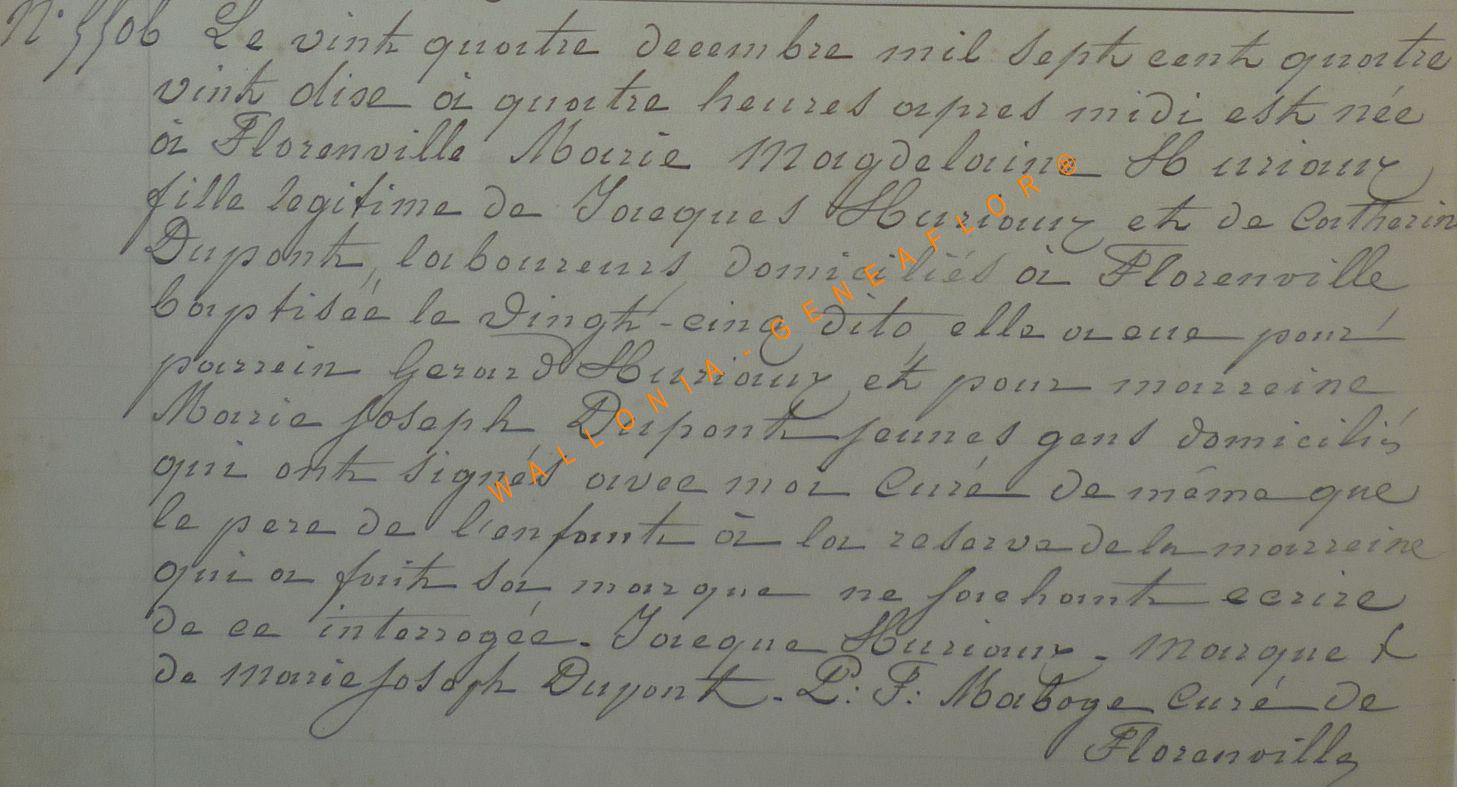 N° 5506 Le vint quatre decembre mil sept cent quatre
vint dise à quatre heures apres midi est née
à Florenville Marie Magdelaine Huriaux
fille legitime de Jacques Huriaux et de Catherin
Dupont, laboureurs domiciliés à Florenville
baptisée le vingt-cinq dito, elle a eue pour
parrein Gerard Huriaux et pour marreine
Marie Joseph Dupont jeunes gens domiciliés
qui ont signés avec moi Curé de même que
le pere de l'enfant à la reserve de la marreine
qui a fait sa marque ne sachant ecrire
de ce interrogée. Jacque Huriaux. Marque X
de Marie Joseph Dupont. P: F: Maboge Curé de
Florenville
WALLONIA-GENEAFLOR®